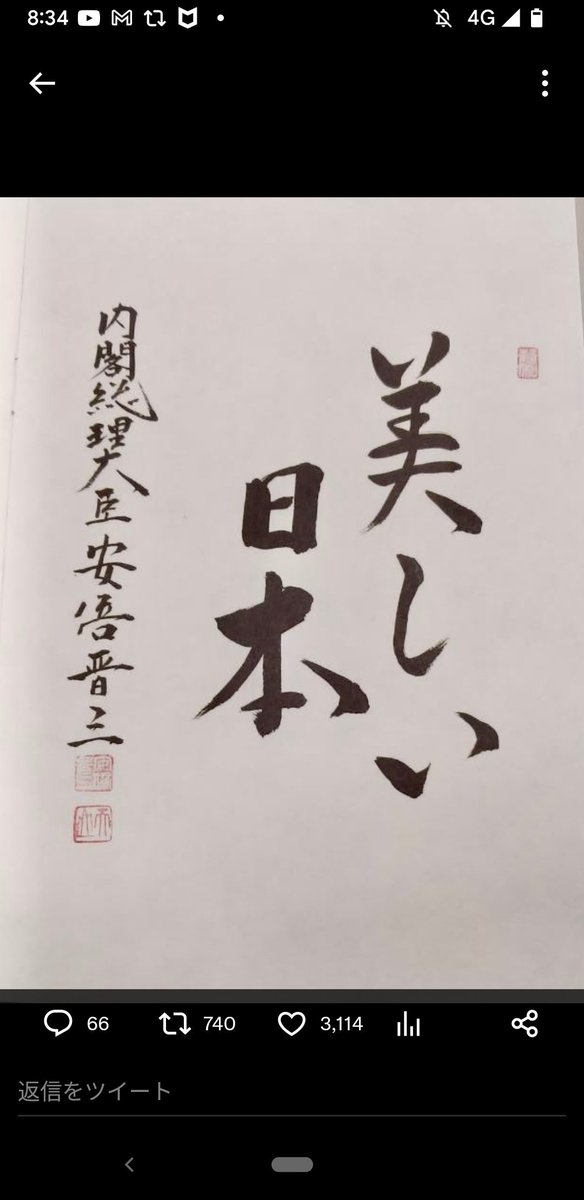 8:34 4G
美しい
日本
内閣総理大臣安倍晋三
66 740 3,114
返信をツイート